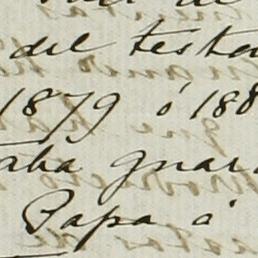 del testa
1879 ó 188
aba guar
Papa á